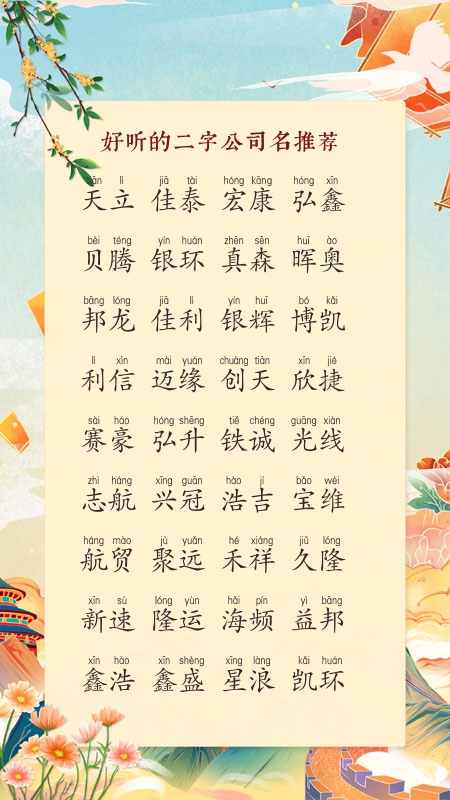 好听的二字公司名推荐
tiān lì jiā tài hóng kāng hóng xīn
天立 佳泰 宏康 弘鑫
bèi téng yín huán zhēn sēn huī ào
贝腾 银环 真森 晖奥
bāng lóng jiā lì yín huī bó kǎi
邦龙 佳利 银辉 博凯
lì xìn mài yuán chuàng tiān xīn jié
利信 迈缘 创天 欣捷
sài háo hóng shēng tiě chéng guāng xiàn
赛豪 弘升 铁诚 光线
zhì háng xīng guān hào jí bǎo wéi
志航 兴冠 浩吉 宝维
háng mào jù yuǎn hé xiáng jiǔ lóng
航贸 聚远 禾祥 久隆
xīn sù lóng yùn hǎi pín yì bāng
新速 隆运 海频 益邦
xīn hào xīn shèng xīng làng kǎi huán
鑫浩 鑫盛 星浪 凯环